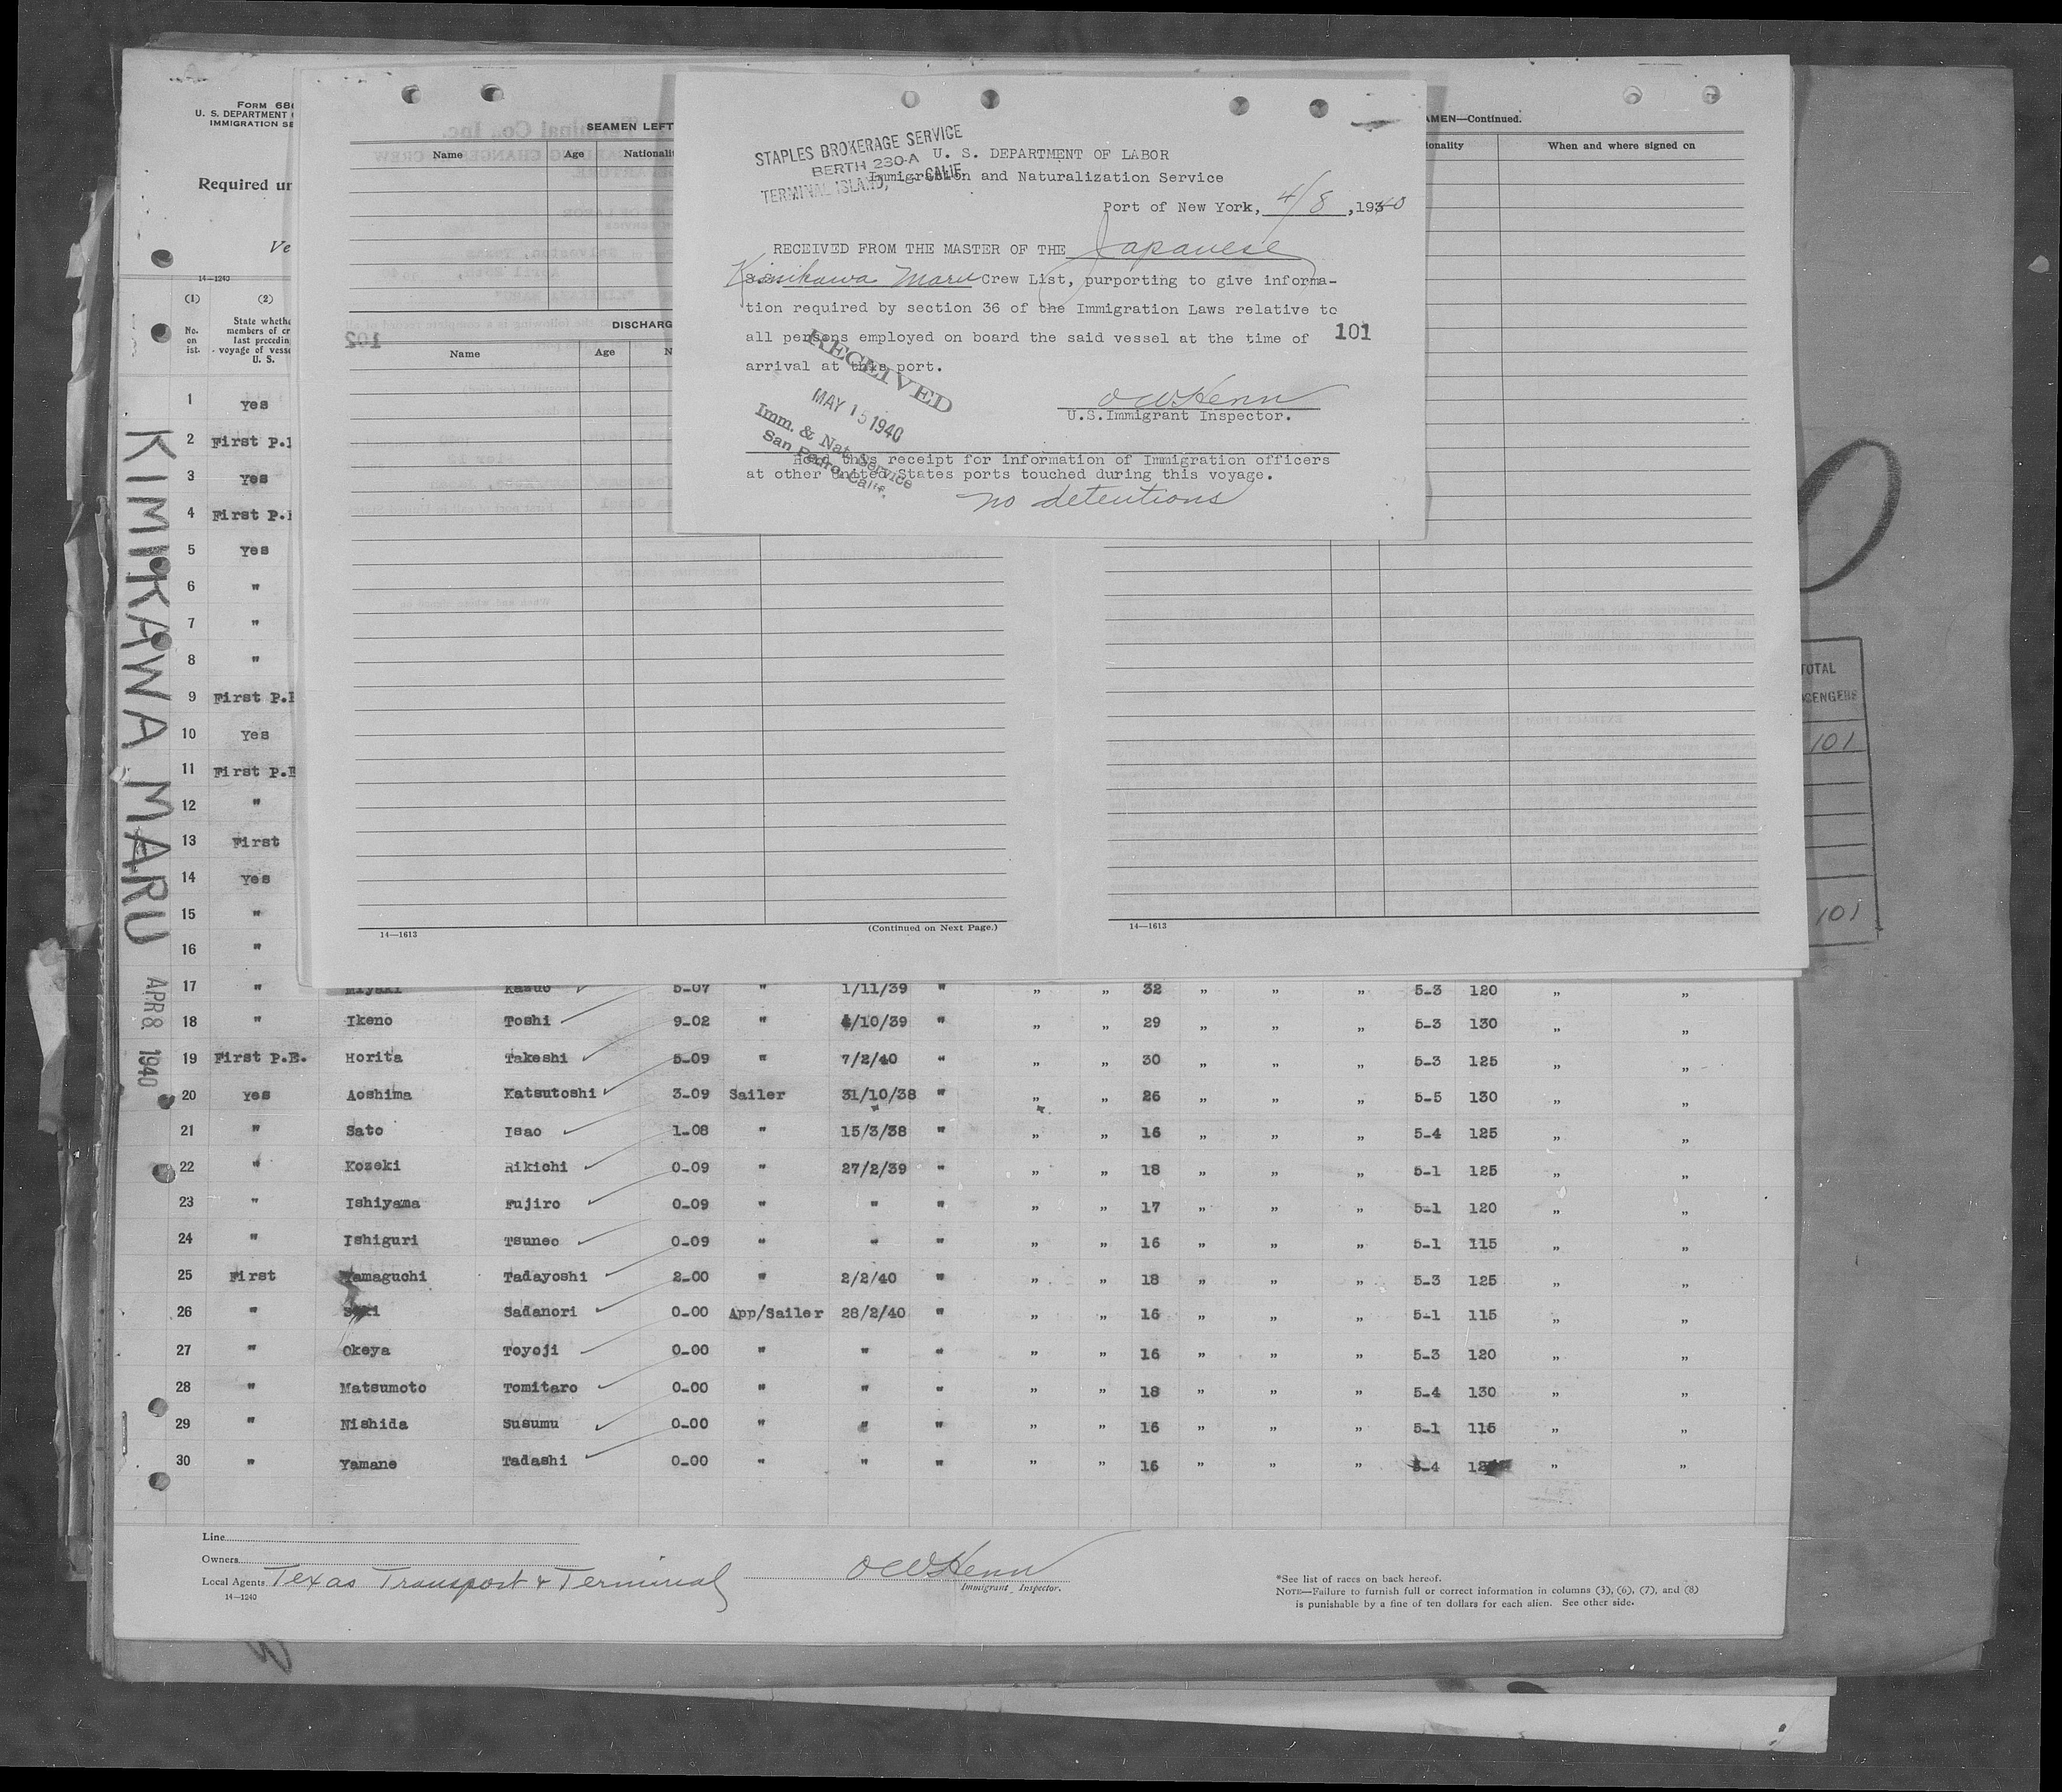 FORM 68
U. S. DEPARTMENT
IMMIGRATION SE
Required un
Ve
14—1240
(1) (2)
No. on list.
State whethe
members of cr
last precedin
voyage of vesse
U. S.
1 Yes
2 First P.
3 Yes
4 First P.
5 Yes
6 "
7 "
8 "
9 First P.
10 Yes
11 First P.E
12 "
13 First
14 Yes
15 "
16 "
KIMIKAWA MARU
APR 8 1940
SEAMEN LEFT
Name Age Nationali
DISCHARG
Name Age N
102
14—1613
(Continued on Next Page.)
AMEN—Continued.
ionality When and where signed on
14—1613
STAPLES BROKERAGE SERVICE
BERTH 230-A
TERMINAL ISLAND, CALIF.
U. S. DEPARTMENT OF LABOR
Immigration and Naturalization Service
Port of New York, 4/8, 1940
RECEIVED FROM THE MASTER OF THE Japanese
Kimikawa Maru Crew List, purporting to give informa-
tion required by section 36 of the Immigration Laws relative to
all persons employed on board the said vessel at the time of 101
arrival at this port.
OWHenn
U.S.Immigrant Inspector.
RECEIVED
MAY 15 1940
Imm. & Nat. Service
San Pedro, Calif.
Hold this receipt for information of Immigration officers
at other United States ports touched during this voyage.
no detentions
TOTAL
101
101
17 " Miyaki Kasuo 5-07 " 1/11/39 " " " 32 " " " 5-3 120 " "
18 " Ikeno Toshi 9-02 " 4/10/39 " " " 29 " " " 5-3 130 " "
19 First P.E. Horita Takeshi 5-09 " 7/2/40 " " " 30 " " " 5-3 125 " "
20 Yes Aoshima Katsutoshi 3-09 Sailer 31/10/38 " " " 26 " " " 5-5 130 " "
21 " Sato Isao 1-08 " 15/3/38 " " " 16 " " " 5-4 125 " "
22 " Kozeki Rikichi 0-09 " 27/2/39 " " " 18 " " " 5-1 125 " "
23 " Ishiyama Fujiro 0-09 " " " " " 17 " " " 5-1 120 " "
24 " Ishiguri Tsuneo 0-09 " " " " " 16 " " " 5-1 115 " "
25 First Yamaguchi Tadayoshi 2-00 " 2/2/40 " " " 18 " " " 5-3 125 " "
26 " Sadanori 0-00 App/Sailer 28/2/40 " " " 16 " " " 5-1 115 " "
27 " Okeya Toyoji 0-00 " " " " " 16 " " " 5-3 120 " "
28 " Matsumoto Tomitaro 0-00 " " " " " 18 " " " 5-4 130 " "
29 " Nishida Susumu 0-00 " " " " " 16 " " " 5-1 115 " "
30 " Yamane Tadashi 0-00 " " " " " 16 " " " 5-4 " "
Line
Owners
Local Agents Texas Transport & Terminal
14—1240
OWHenn
Immigrant Inspector.
*See list of races on back hereof.
NOTE—Failure to furnish full or correct information in columns (3), (6), (7), and (8)
is punishable by a fine of ten dollars for each alien. See other side.